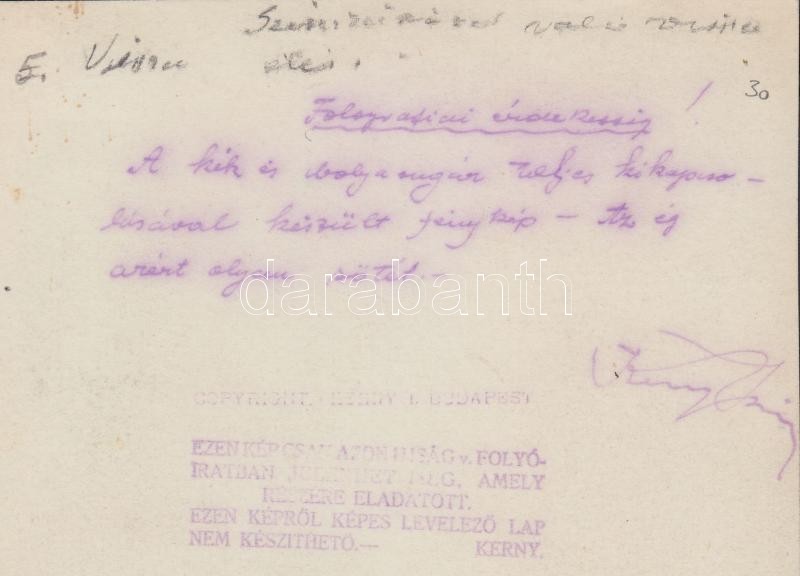 5. Vissza
30
Fotografiai érdekesség!
A kék és ibolya sugár teljes kikapcso-
lásával készült fénykép - Az ég
azért olyan sötét.-
darabanth
COPYRIGHT. KERNY I. BUDAPEST
EZEN KÉP CSAK AZON UJSÁG v. FOLYÓ-
IRATBAN JELENHET MEG, AMELY
RÉSZÉRE ELADATOTT.
EZEN KÉPRŐL KÉPES LEVELEZŐ LAP
NEM KÉSZITHETŐ.— KERNY.